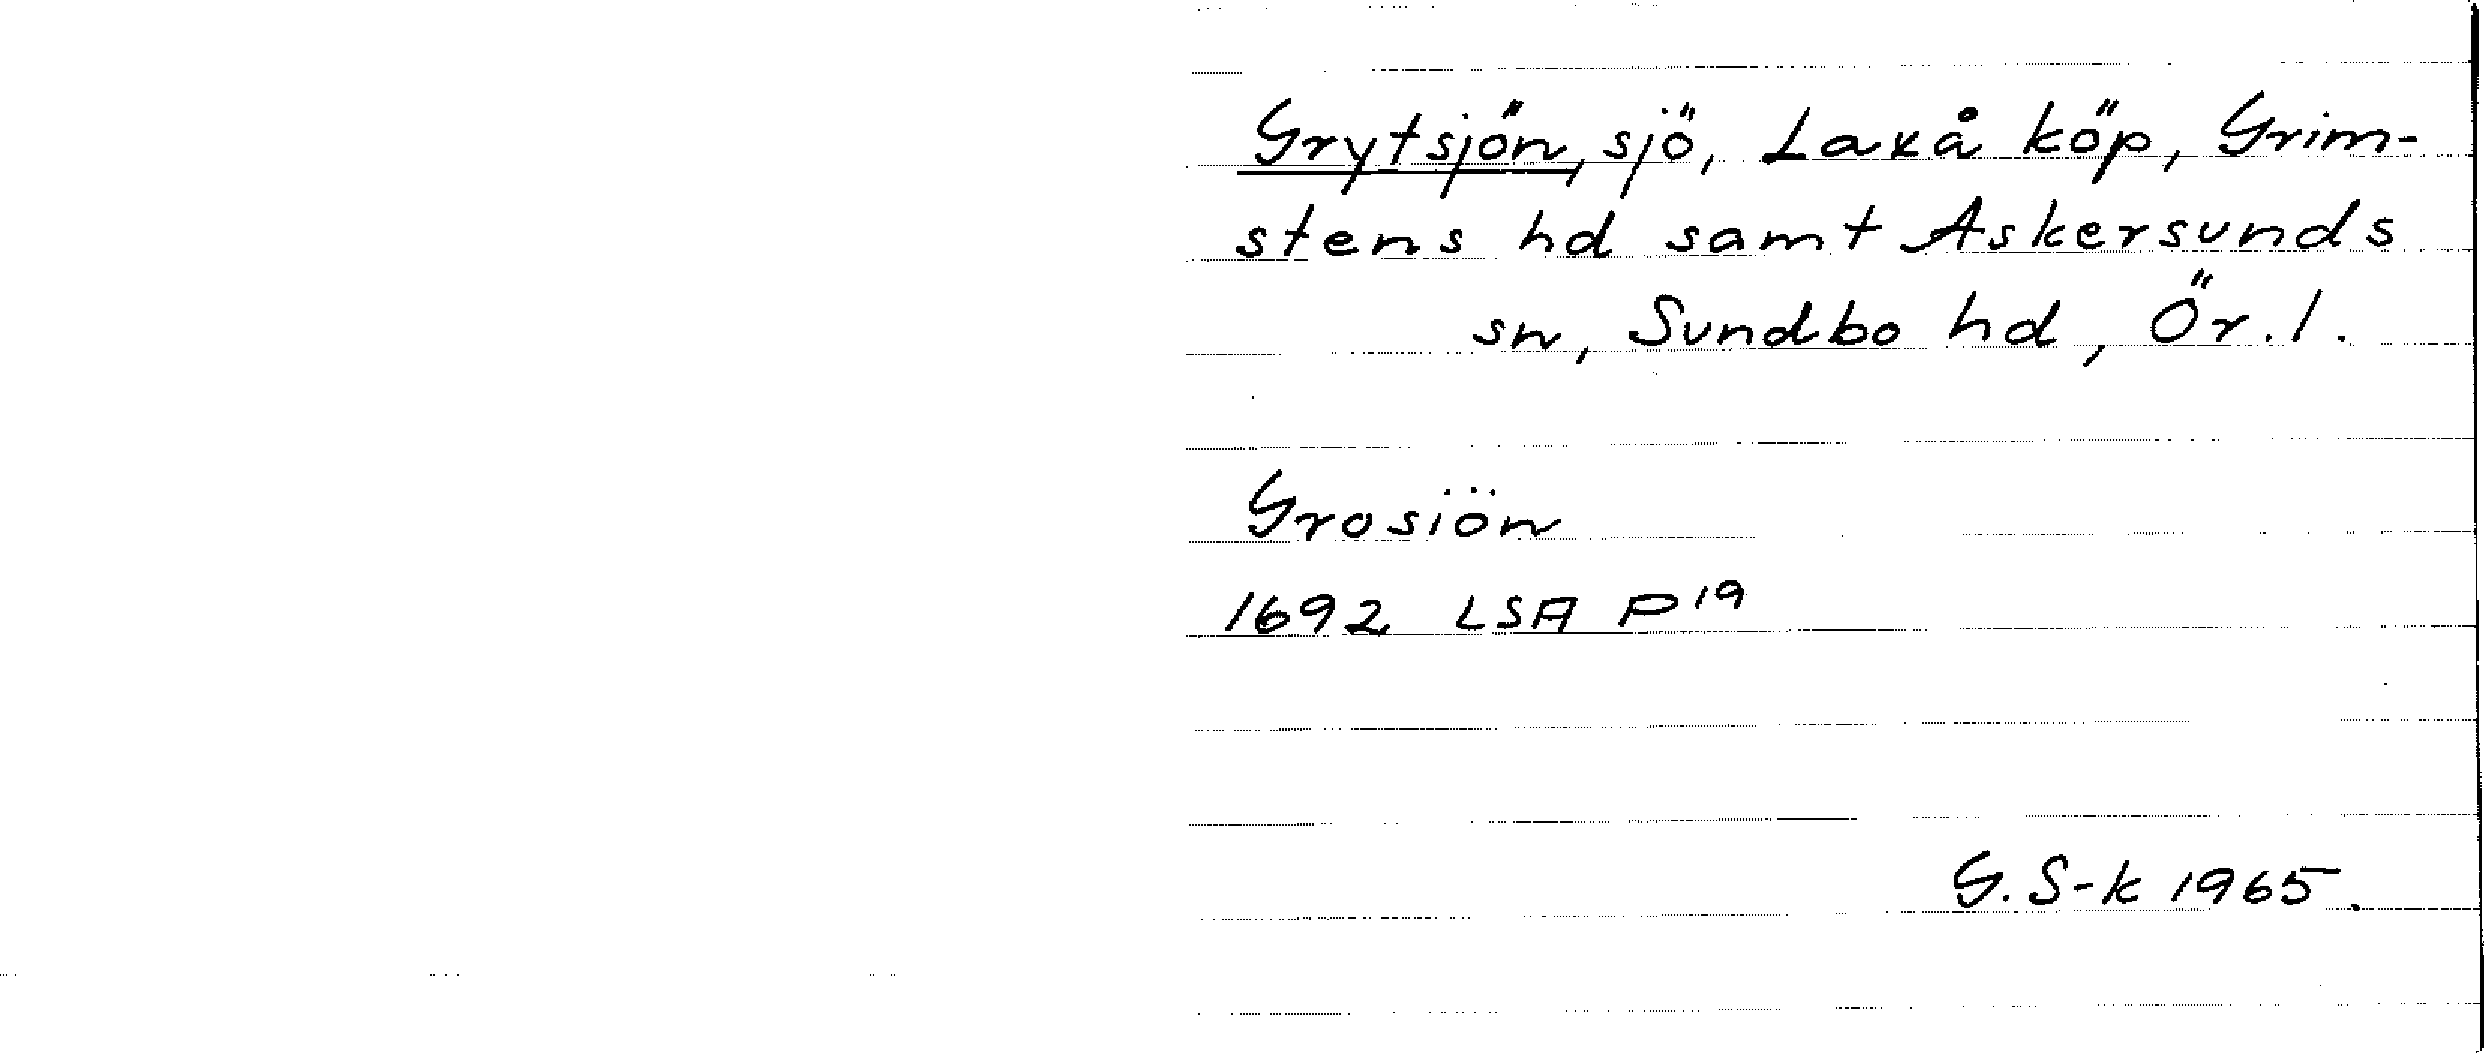 Grytsjön, sjö, Laxå köp, Grim-
stens hd samt Askersunds
sn, Sundbo hd, Ör. l.
Grosiön
1692 LSA P19
G. S-k 1965.